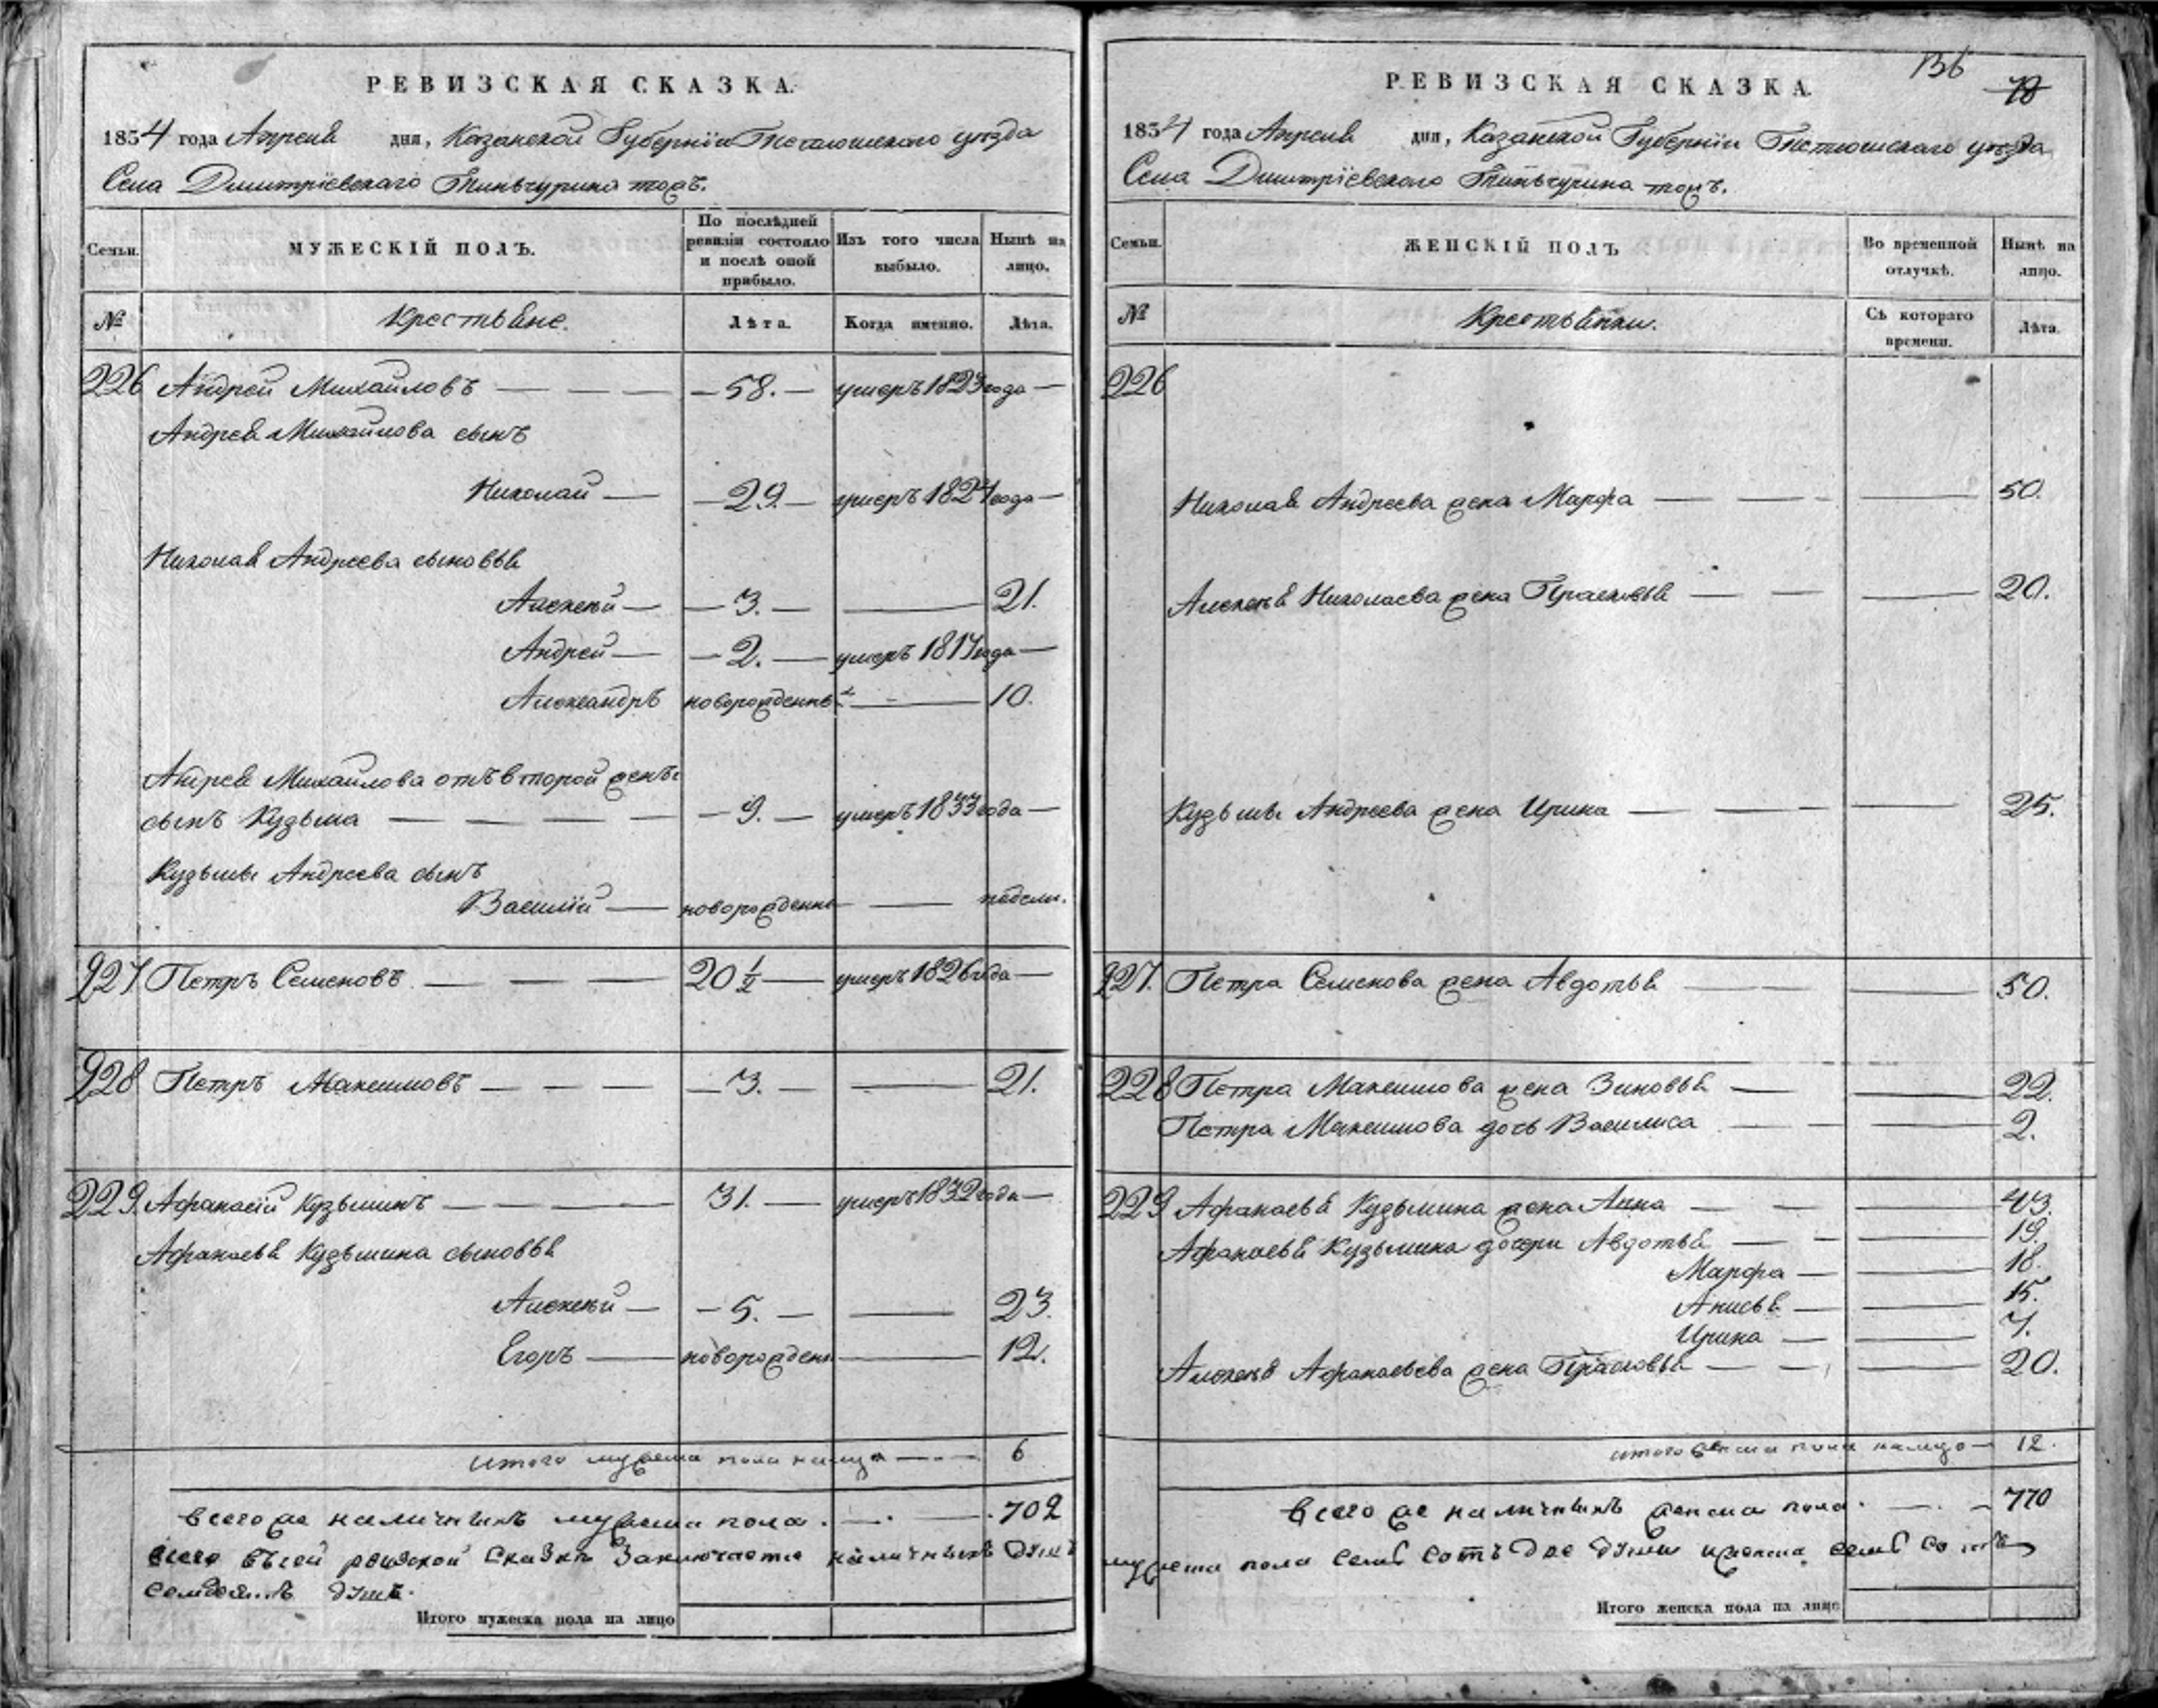 РЕВИЗСКАЯ СКАЗКА.
1834 года Апреля дня, Казанской Губернїи Тетюшскаго уезда
Села Димитрїевскаго Тиньчурино тожъ.
Семьи.
МУЖЕСКІЙ ПОЛЪ.
По послѣдней ревизіи состояло и послѣ оной прибыло.
Изъ того числа выбыло.
Нынѣ на лицо.
№
Крестьяне.
Лѣта.
Когда именно.
Лѣта.
226 Андрей Михайловъ — 58. — умеръ 1823 года —
Андрея Михайлова сынъ
Николай — 29. — умеръ 1824 года —
Николая Андреева сыновья
Алексей — 3. — 21.
Андрей — 2. — умеръ 1817 года —
Александръ новорожденны — 10.
Андрея Михайлова отъ второй жены
сынъ Кузьма — 9. — умеръ 1833 года —
Кузьмы Андреева сынъ
Василїй — новорожденны — недели.
227 Петръ Семеновъ — 20 1/2 — умеръ 1826 года —
228 Петръ Максимовъ — 3. — 21.
229. Афанасїй Кузьминъ — 31. — умеръ 1832 года —
Афанасья Кузьмина сыновья
Алексей — 5. — 23.
Егоръ — новорожден — 12.
итого мужеска пола налицо — 6
Всего же наличныхъ мужеска пола. — 702
Итого мужеска пола на лицо
136
78
РЕВИЗСКАЯ СКАЗКА.
1834 года Апреля дня, Казанской Губернїи Тетюшскаго уезда
Села Димитрїевскаго Тиньчурина тожъ.
Семьи.
ЖЕНСКІЙ ПОЛЪ
Во временной отлучкѣ.
Нынѣ на лицо.
№
Крестьянки.
Съ котораго времени.
Лѣта.
226
Николая Андреева жена Марфа — 50.
Алексея Николаева жена Прасковья — 20.
Кузьмы Андреева жена Ирина — 25.
227. Петра Семенова жена Авдотья — 50.
228 Петра Максимова жена Зиновья — 22.
Петра Максимова дочь Василиса — 2.
229 Афанасья Кузьмина жена Анна — 43.
Афанасья Кузьмина дочери Авдотья — 19.
Марфа — 18.
Анисья — 15.
Ирина — 7.
Алексея Афанасьева жена Прасковья — 20.
итого женска пола налицо — 12.
Всего же наличныхъ женска пола. — 770
Всего въ сей ревизской сказке Заключается наличныхъ душъ мужеска пола семь сотъ две души и женска семь сотъ
семдесятъ душъ.
Итого женска пола на лицо